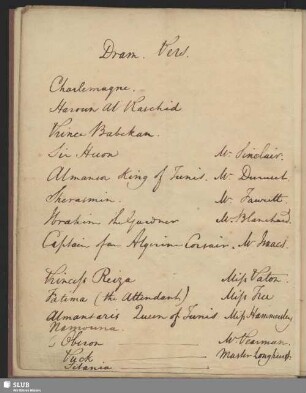 Dram. Pers.
Charlemagne.
Haroun Al Raschid
Prince Babekan.
Sir Huon Mr Sinclair.
Almanor King of Tunis. Mr Duruset
Sherasmin Mr Fawcett
Ibrahim the Gardner Mr Blanchard
Captain of an Algerin Corsair. Mr Isaacs
Princess Reiza Miss Paton.
Fatima (the Attendant) Miss Tree
Almansaris Queen of Tunis Miss Hammersley
Namouna.
Oberon Mr Pearman.
Puck Master Longhurst
Titania
SLUB